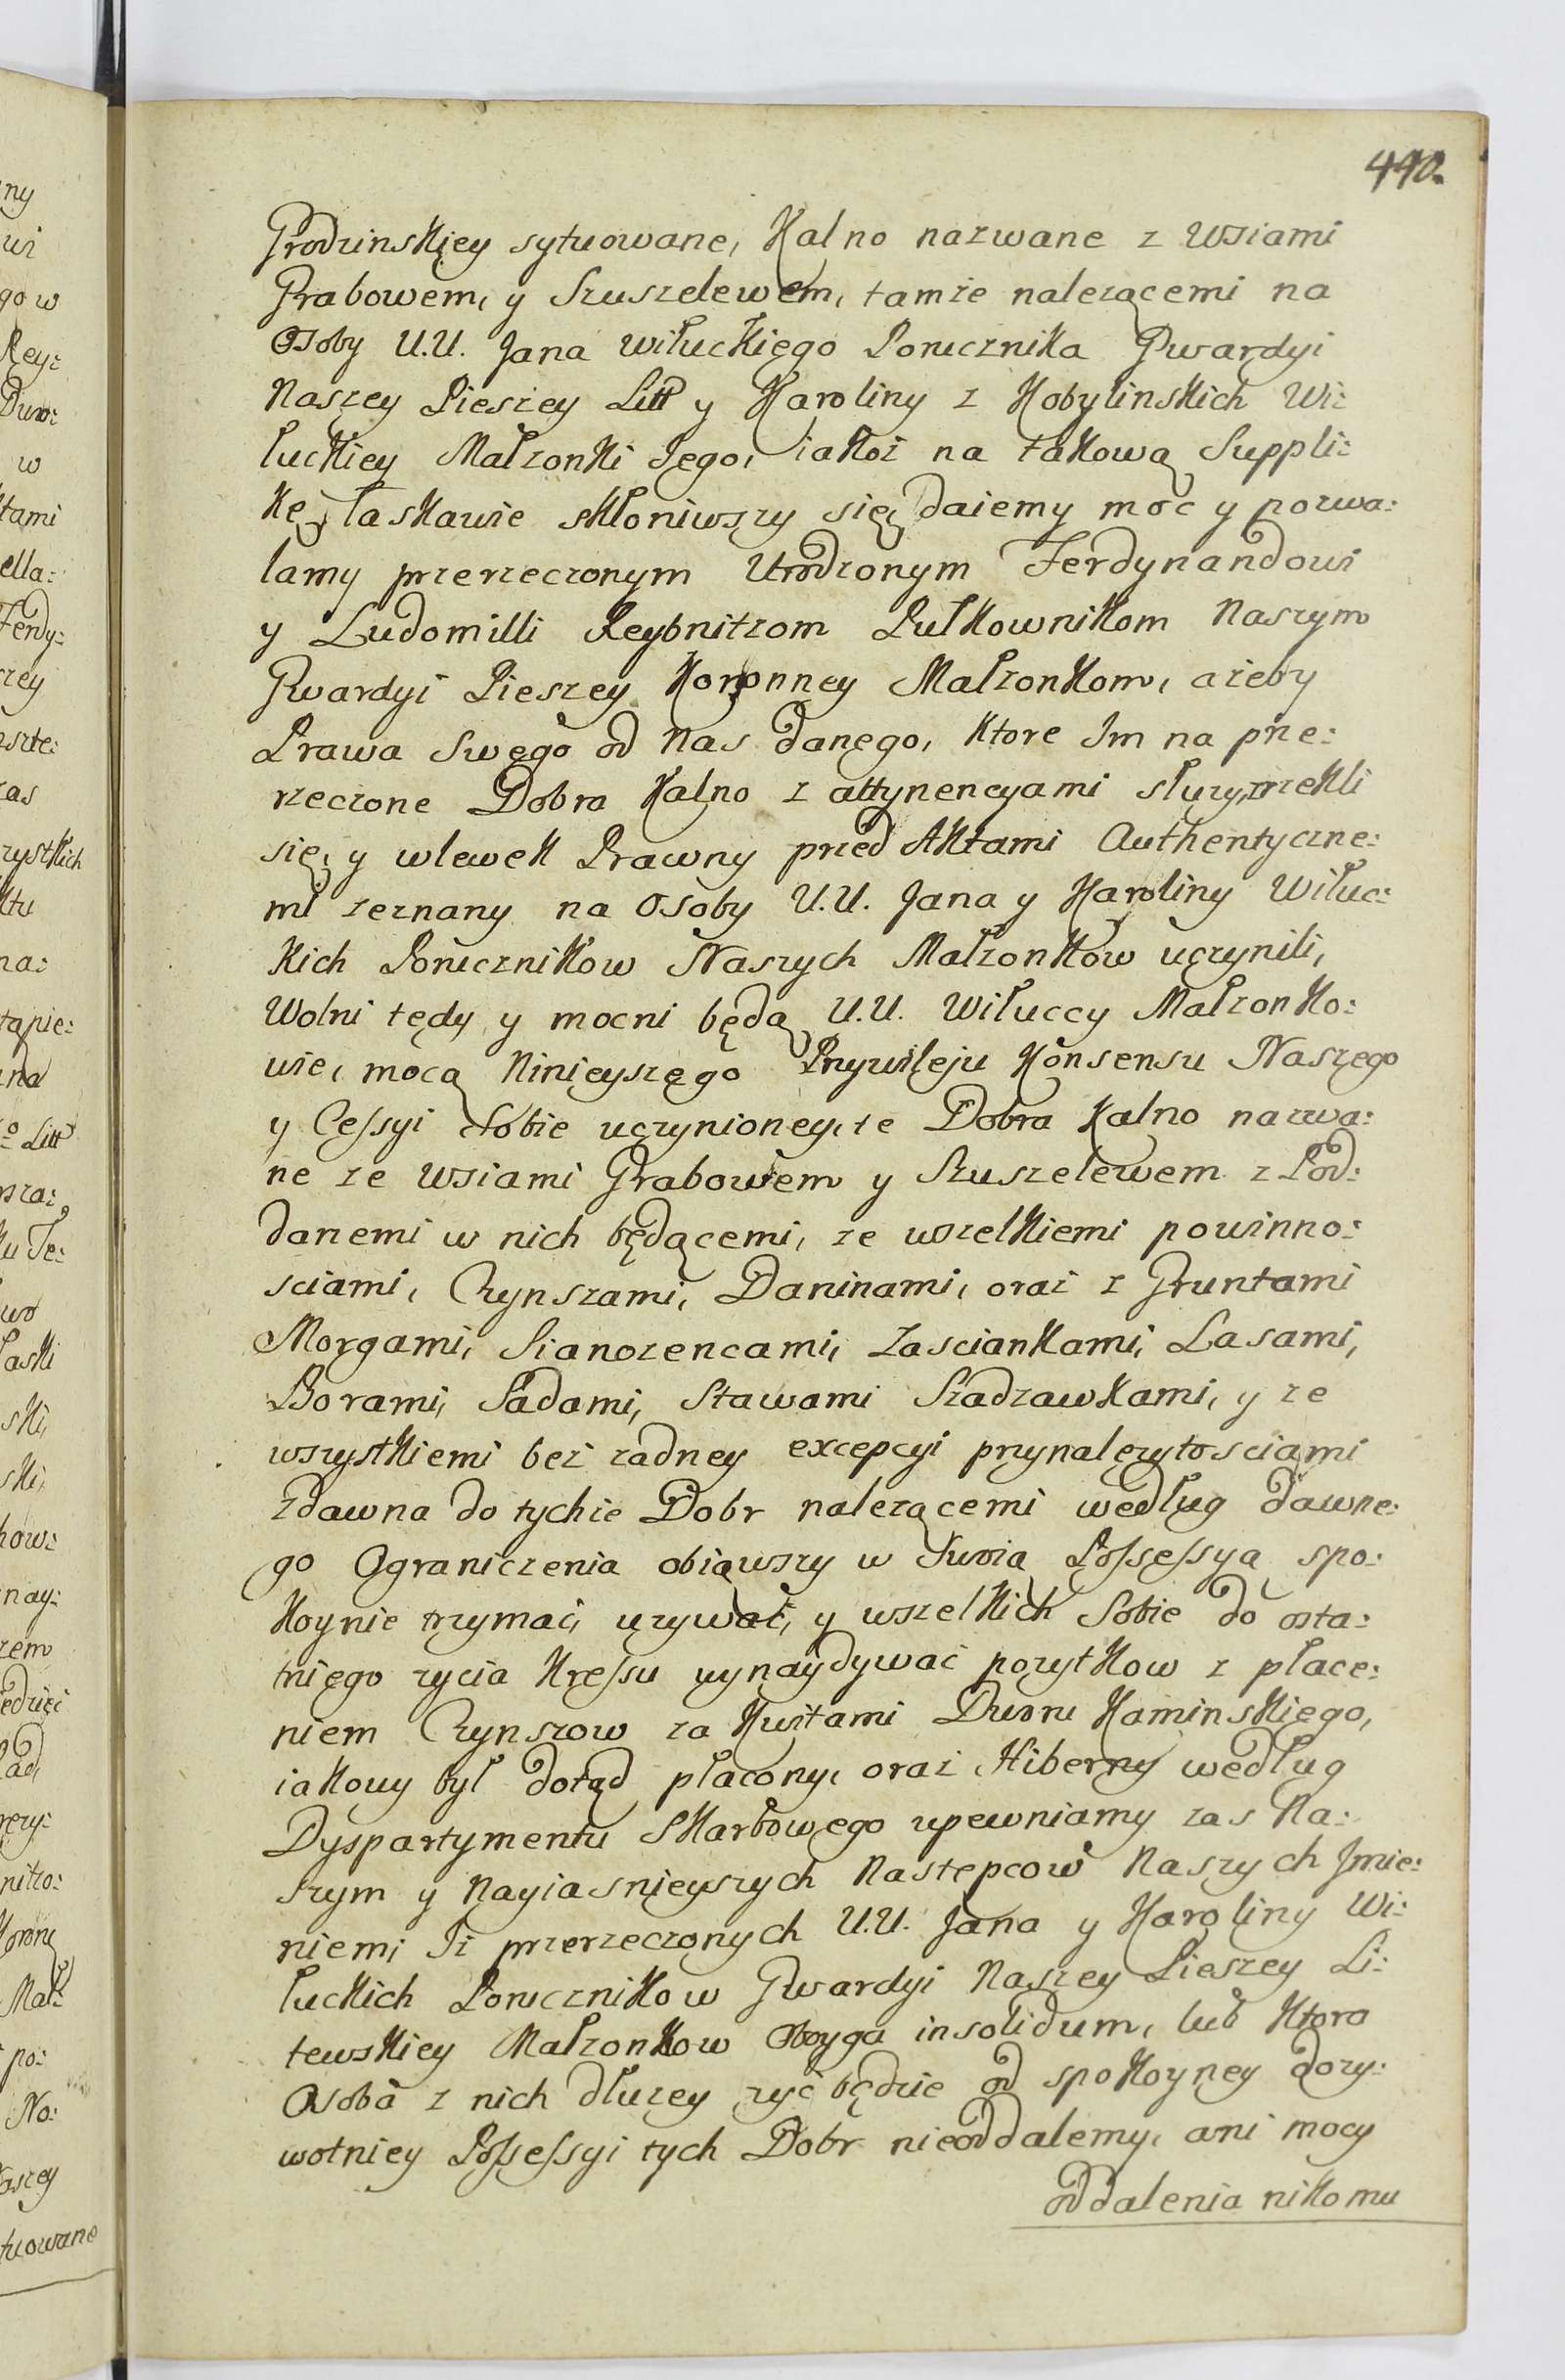 440.
Grodzinskiey sytuowane, Kalno nazwane z Wsiami
Grabowem, y Szuszelewem, tamże nalezącemi na
Osoby U.U. Jana Wiłuckięgo Porucznika Gwardyi
Naszey Pieszey Litt y Karoliny z Kobylinskich Wi:
łuckiey Małżonki Jego, iakoż na takową Suppli:
kę łaskawie skłoniwszy się, daiemy moc y pozwa:
lamy przerzeczonym Urodzonym Ferdynandowi
y Ludomilli Reybnitzom Pułkownikom Naszym
Gwardyi Pieszey Koronney Małżonkom, ażeby
Prawa Swego od Nas danego, ktore Im na prze:
rzeczone Dobra Kalno z attynencyami służy, zrzekli
się, y wlewek Prawny przed Aktami Authentyczne:
mi zeznany na Osoby U.U. Jana y Karoliny Wiłuc:
kich Porucznikow Naszych Małżonkow uczynili,
Wolni tędy y mocni będą U.U. Wiłuccy Małżonko:
wie, mocą Ninięyszego Przywileju Konsensu Naszego
y Cessyi Sobie uczynioney, te Dobra Kalno nazwa:
ne ze Wsiami Grabowem y Szuszelewem z Pod:
danemi w nich będącemi, ze wszelkiemi powinno:
sciami, Czynszami, Daninami, oraz z Gruntami
Morgami, Sianozencami, Zasciankami, Lasami,
Borami, Sadami, Stawami Sadzawkami, y ze
wszystkiemi bez zadney excepcyi przynalężytosciami
zdawna do tychże Dobr nalezącemi według dawne:
go Ograniczenia obiąwszy w Swoią Possessyą spo:
koynie trzymać, używać, y wszelkich Sobie do osta:
tniego zycia kressu wynaydywać pożytkow z płace:
niem Czynszow za Kwitami Dworu Kaminskięgo,
iakowy był dotąd płacony, oraz Hiberny według
Dyspartymentu Skarbowego upewniamy zas Na:
szym y Nayiasnieyszych Nastepcow Naszych Jmie:
niem; Iż przerzeczonych U.U. Jana y Karoliny Wi:
łuckich Porucznikow Gwardyi Naszey Pieszey Li:
tewskiey Małżonkow Oboyga insolidum, lub ktora
Osoba z nich dłużey żyć będzie od spokoyney dozy:
wotniey Possessyi tych Dobr nieoddalemy, ani mocy
oddalenia nikomu